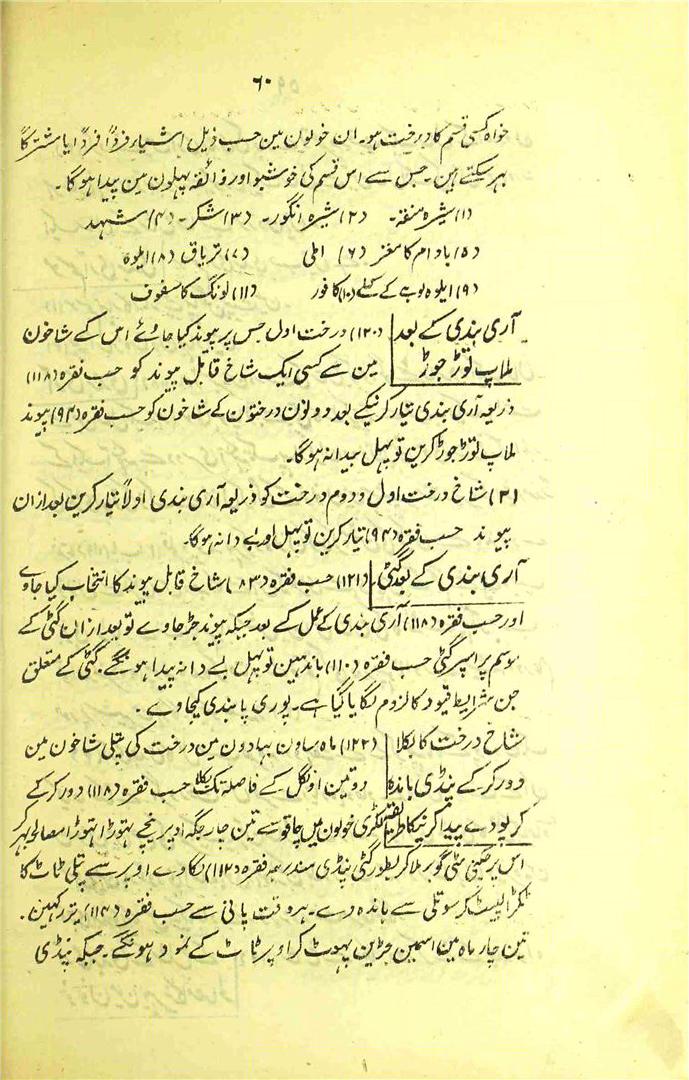 ۶۰
خواہ کسی قسم کا درخت ہو۔ ان خولون مین حسب ذیل اشیار فرداً فرداً یا مشترکاً
بہر سکتے ہین۔ جس سے اس قسم کی خوشبو اور ذائقہ پہلون مین پیدا ہو گا۔
(۱) شیرہ منقہ۔ (۲) شیرہ انگور۔ (۳) شکر۔ (۴) شہد
(۵) بادام کا مغز (۶) املی (۷) تریاق (۸) ایلوہ
(۹) ایلوہ لوہے کے کہلے (۱۰) کافور (۱۱) لونگ کا سفوف
آری بندی کے بعد (۱۲۰) درخت اول جس پر پیوند کیا جاوے اس کے شاخون
ملاپ توڑ جوڑ مین سے کسی ایک شاخ قابل پیوند کو حسب فقرہ (۱۱۸)
ذریعہ آری بندی تیار کرنیکے بعد دولون درختون کے شاخون کو حسب فقرہ (۹۴) پیوند
ملاپ توڑ جوڑ کرین تو پہل بیدانہ ہوگا۔
(۲) شاخ درخت اول و دوم درخت کو ذریعہ آری بندی اولاً تیار کرین بعد ازان
پیوند حسب فقرہ (۹۴) تیار کرین تو پہل اور بے دانہ ہوگا۔
آری بندی کے بعد گٹی (۱۲۱) حسب فقرہ (۸۳) شاخ قابل پیوند کا انتخاب کیا جاوے
اور حسب فقرہ (۱۱۸) آری بندی کے عمل کے بعد جبکہ پیوند جڑ جاوے تو بعد ازان گٹی کے
موسم پر اسپر گٹی حسب فقرہ (۱۱۰) باندہین تو پہل بے دانہ پیدا ہونگے۔ گٹی کے متعلق
جن شرایط قیود کا لزوم لگایا گیا ہے۔ پوری پابندی کیجاوے۔
شاخ درخت کا بکلا (۱۲۲) ماہ ساون بہادون مین درخت کی پتلی شاخون مین
دور کر کے پنڈی باندہ دو تین اونگل کے فاصلہ تک بکلا حسب فقرہ (۱۱۸) دور کر کے
کر پودے پیدا کرنیکا طریقہ لکڑی خولون مین چاقو سے تین چار جگہ اوپر نیچے تہوڑا تہوڑا مصالحہ بہر کر
اس پر چکنی مٹی گوبر ملا کر بطور گٹی پنڈی مندرجہ فقرہ (۱۱۲) لگا دے اوپر سے پتلی ٹاٹ کا
ٹکڑا لپیٹ کر سوتلی سے باندہ دے۔ ہر وقت پانی سے حسب فقرہ (۱۱۴) تر رکہین۔
تین چار ماہ مین اسمین جڑین پہوٹ کر اوپر ٹاٹ کے نمود ہونگے۔ جبکہ پنڈی